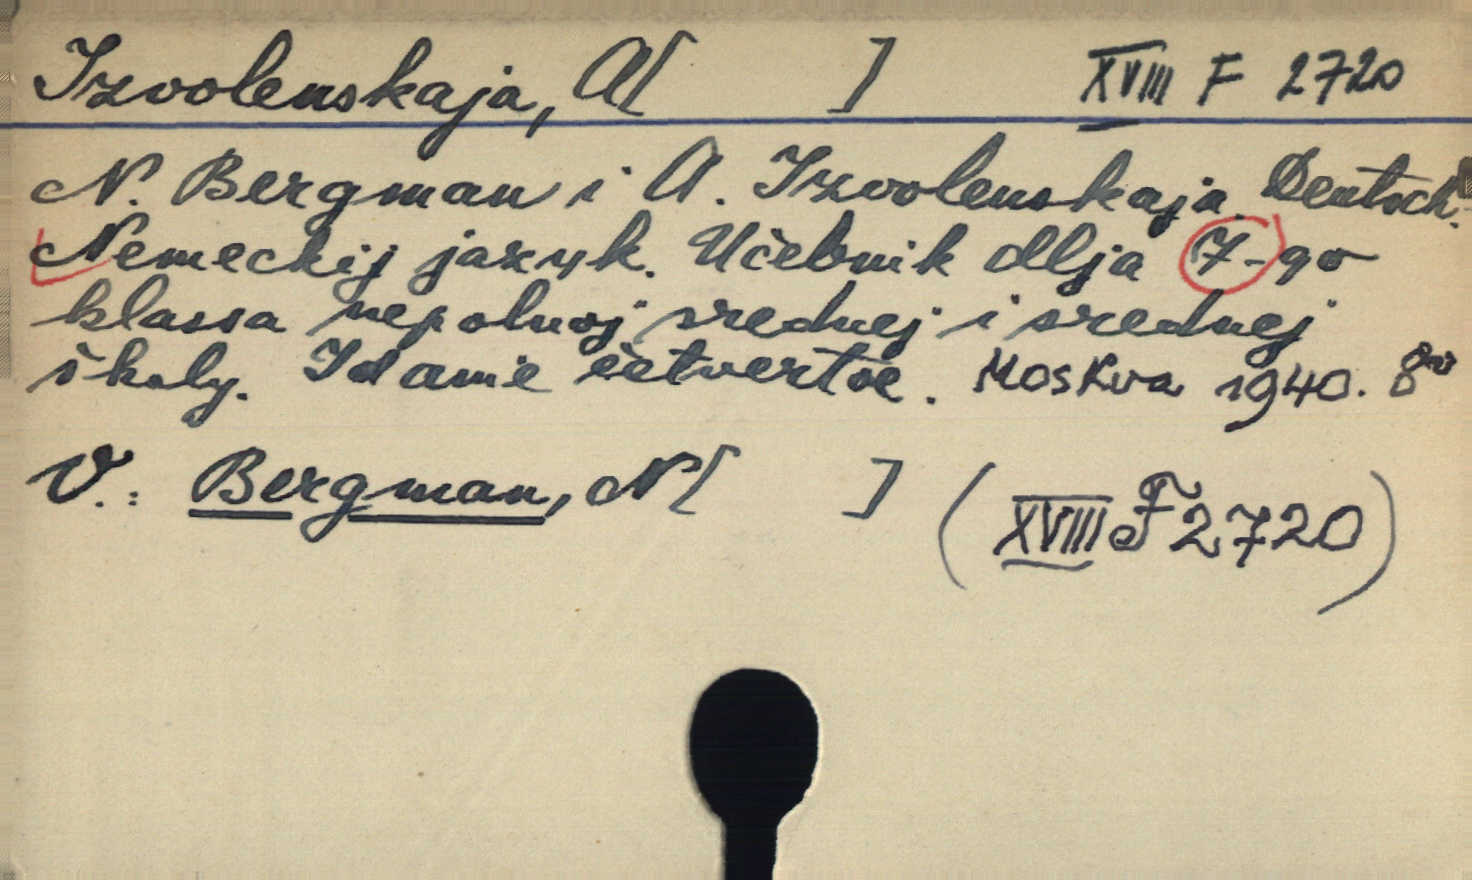 Izvolenskaja, A[ ] XVIII F 2720
N. Bergman i A. Izvolenskaja. Deutsch.
Nemeckij jazyk. Učebnik dlja 7-go
klassa nepolnoj srednej i srednej
školy. Idanie četvertoe. Moskva 1940. 8vo
V.: Bergman, N[ ] (XVIII F 2720)